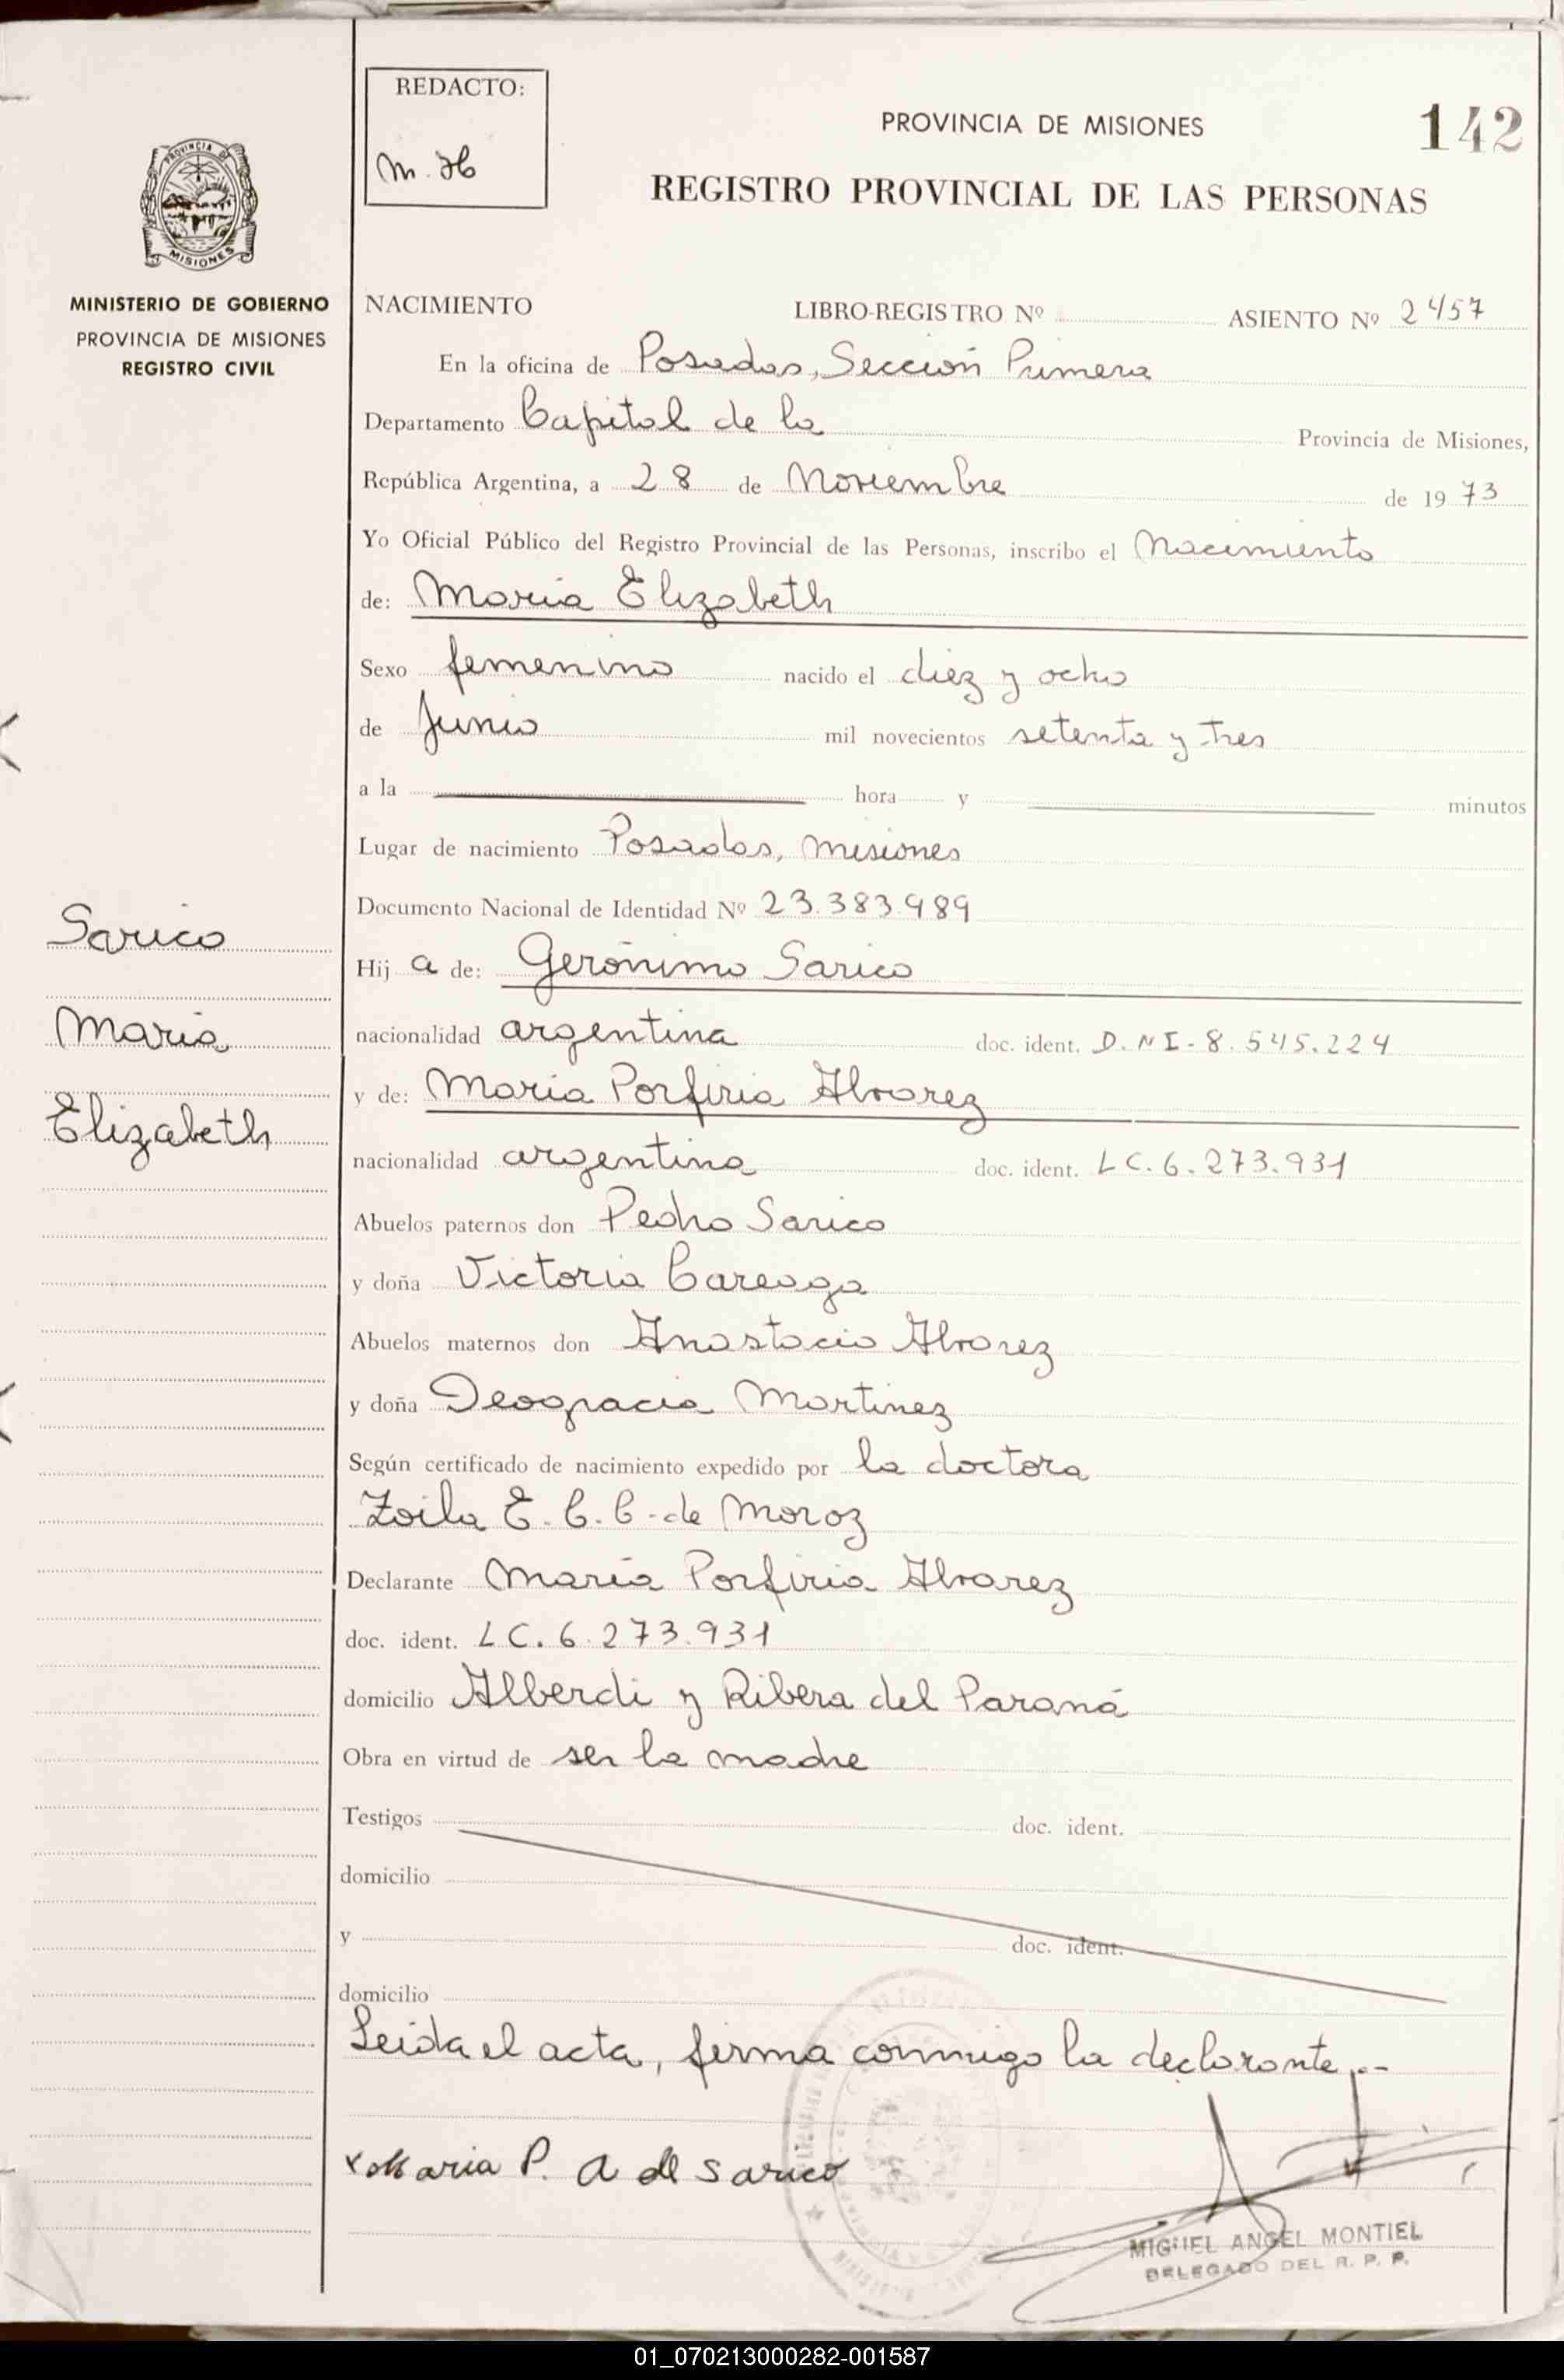 REDACTO:
M. H
PROVINCIA DE MISIONES
142
REGISTRO PROVINCIAL DE LAS PERSONAS
PROVINCIA DE
MISIONES
MINISTERIO DE GOBIERNO
PROVINCIA DE MISIONES
REGISTRO CIVIL
NACIMIENTO LIBRO-REGISTRO Nº ASIENTO Nº 2457
En la oficina de Posadas, Sección Primera
Departamento Capital de la Provincia de Misiones,
República Argentina, a 28 de Noviembre de 1973
Yo Oficial Público del Registro Provincial de las Personas, inscribo el Nacimiento
de: Maria Elizabeth
Sexo femenino nacido el diez y ocho
de Junio mil novecientos setenta y tres
a la hora y minutos
Lugar de nacimiento Posadas, Misiones
Documento Nacional de Identidad Nº 23.383.989
Sarico
Maria
Elizabeth
Hij a de: Gerónimo Sarico
nacionalidad argentina doc. ident. D.N I. 8.545.224
y de: Maria Porfiria Alvarez
nacionalidad argentina doc. ident. LC. 6.273.931
Abuelos paternos don Pedro Sarico
y doña Victoria Careaga
Abuelos maternos don Anastacio Alvarez
y doña Deogracia Martinez
Según certificado de nacimiento expedido por la doctora
Zoila E. C. C. de Moroz
Declarante María Porfiria Alvarez
doc. ident. LC. 6.273.931
domicilio Alberdi y Ribera del Paraná
Obra en virtud de ser la madre
Testigos doc. ident.
domicilio
y doc. ident.
domicilio
Leida el acta, firma conmigo la declarante.-
x Maria P. A de Sarico
MIGUEL ANGEL MONTIEL
DELEGADO DEL R. P. P.
01_070213000282-001587